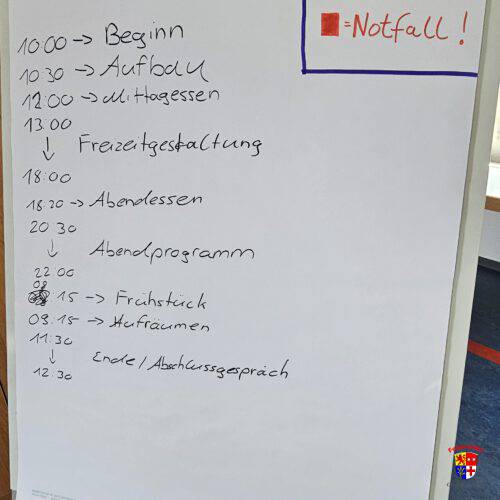 =Notfall!
10:00 -> Beginn
10:30 -> Aufbau
12:00 -> Mittagessen
13:00
↓ Freizeitgestaltung
18:00
18:20 -> Abendessen
20:30
↓ Abendprogramm
22:00
08:15 -> Frühstück
09:15 -> Aufräumen
11:30
↓ Ende/Abschlussgespräch
12:30